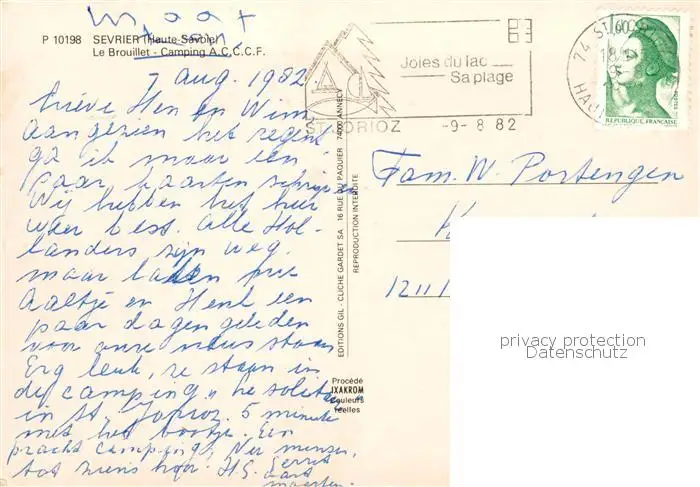 P 10198 SEVRIER (Haute-Savoie)
Le Brouillet - Camping A.C.C.C.F.
7 aug. 1982.
Lieve Hen en Wim
aangezien het regent
ga ik maar een
paar kaarten schrijven
Wij hebben het hier
weer best. Alle Hol-
landers zijn weg.
maar
Aaltje en Henk een
paar dagen geleden
voor onze neus staan
Erg leuk, ze staan in
de camping "
in St. Jorioz. 5 minuten
met het bootje. Een
pracht camping. Nou mensen,
tot ziens hoor. H.G. Gerret
maarten.
EDITIONS GIL - CLICHE GARDET SA 16 RUE DU PAQUIER 74000 ANNECY
REPRODUCTION INTERDITE
Procédé
IXAKROM
Couleurs
réelles
Joies du lac
Sa plage
ST JORIOZ
-9-8 82
74 ST
18
HAU
1,60
REPUBLIQUE FRANÇAISE
Fam. W. Portengen
1211
privacy protection
Datenschutz